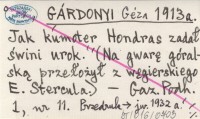 GÁRDONYI Géza 1913 a.
Jak kumoter Hondras zadał
świni urok. (Na gwarę goral-
ską przełożył z węgierskiego
E. Stercula.) — Gaz. Podh.
1, nr 11. Przedruk → jw. 1932 a.